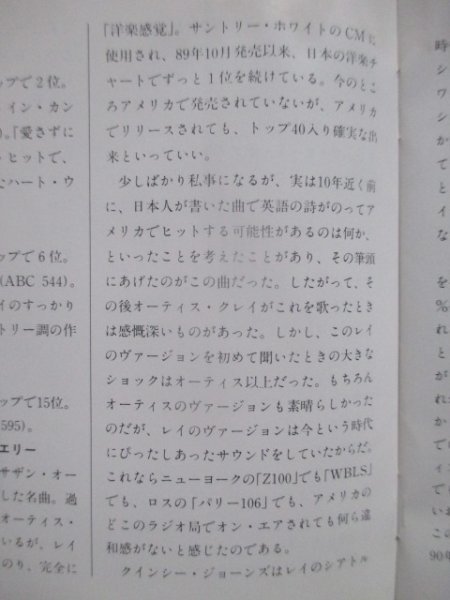 「洋楽感覚」。サントリー・ホワイトのCMに
使用され、89年10月発売以来、日本の洋楽チ
ャートでずっと1位を続けている。今のとこ
ろアメリカで発売されていないが、アメリカ
でリリースされても、トップ40入り確実な出
来といっていい。
少しばかり私事になるが、実は10年近く前
に、日本人が書いた曲で英語の詩がのってア
メリカでヒットする可能性があるのは何か、
といったことを考えたことがあり、その筆頭
にあげたのがこの曲だった。したがって、そ
の後オーティス・クレイがこれを歌ったとき
は感慨深いものがあった。しかし、このレイ
のヴァージョンを初めて聞いたときの大きな
ショックはオーティス以上だった。もちろん
オーティスのヴァージョンも素晴らしかった
のだが、レイのヴァージョンは今という時代
にぴったしあったサウンドをしていたからだ。
これならニューヨークの「Z100」でも「WBLS」
でも、ロスの「パリー106」でも、アメリカの
どこのラジオ局でオン・エアされても何ら違
和感がないと感じたのである。
クインシー・ジョーンズはレイのシアトル
ップで2位。
イン・カン
)。「愛さずに
ヒットで、
たハート・ウ
ップで6位。
(ABC 544)。
イのすっかり
トリー調の作
ップで15位。
595)。
エリー
サザン・オー
した名曲。過
オーティス・
いるが、レイ
のり、完全に
時
シ
ワ
シ
か
て
と
イ
な
を
%
れ
と
が
れ
か
で
こ
90年